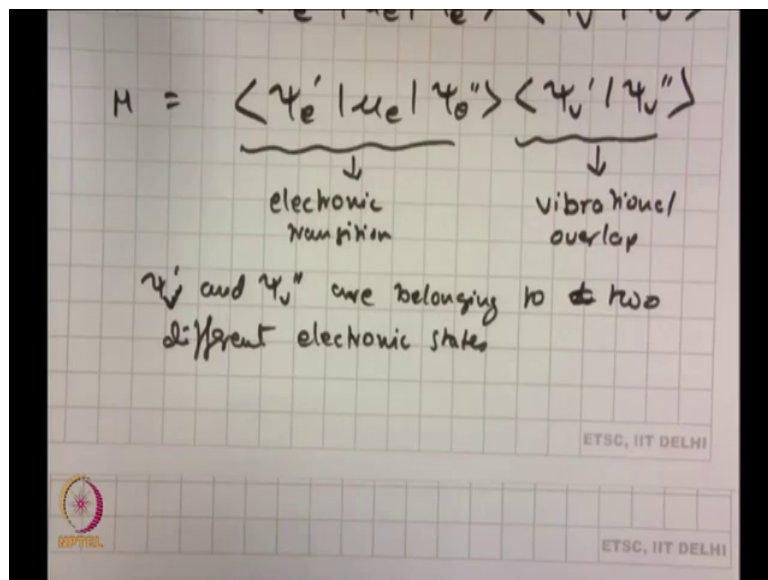 M = <Ψe' |μe| Ψe''> <Ψv' | Ψv''>
↓ ↓
electronic vibrational
transition overlap
Ψv' and Ψv'' are belonging to two
different electronic states
ETSC, IIT DELHI
NPTEL
ETSC, IIT DELHI